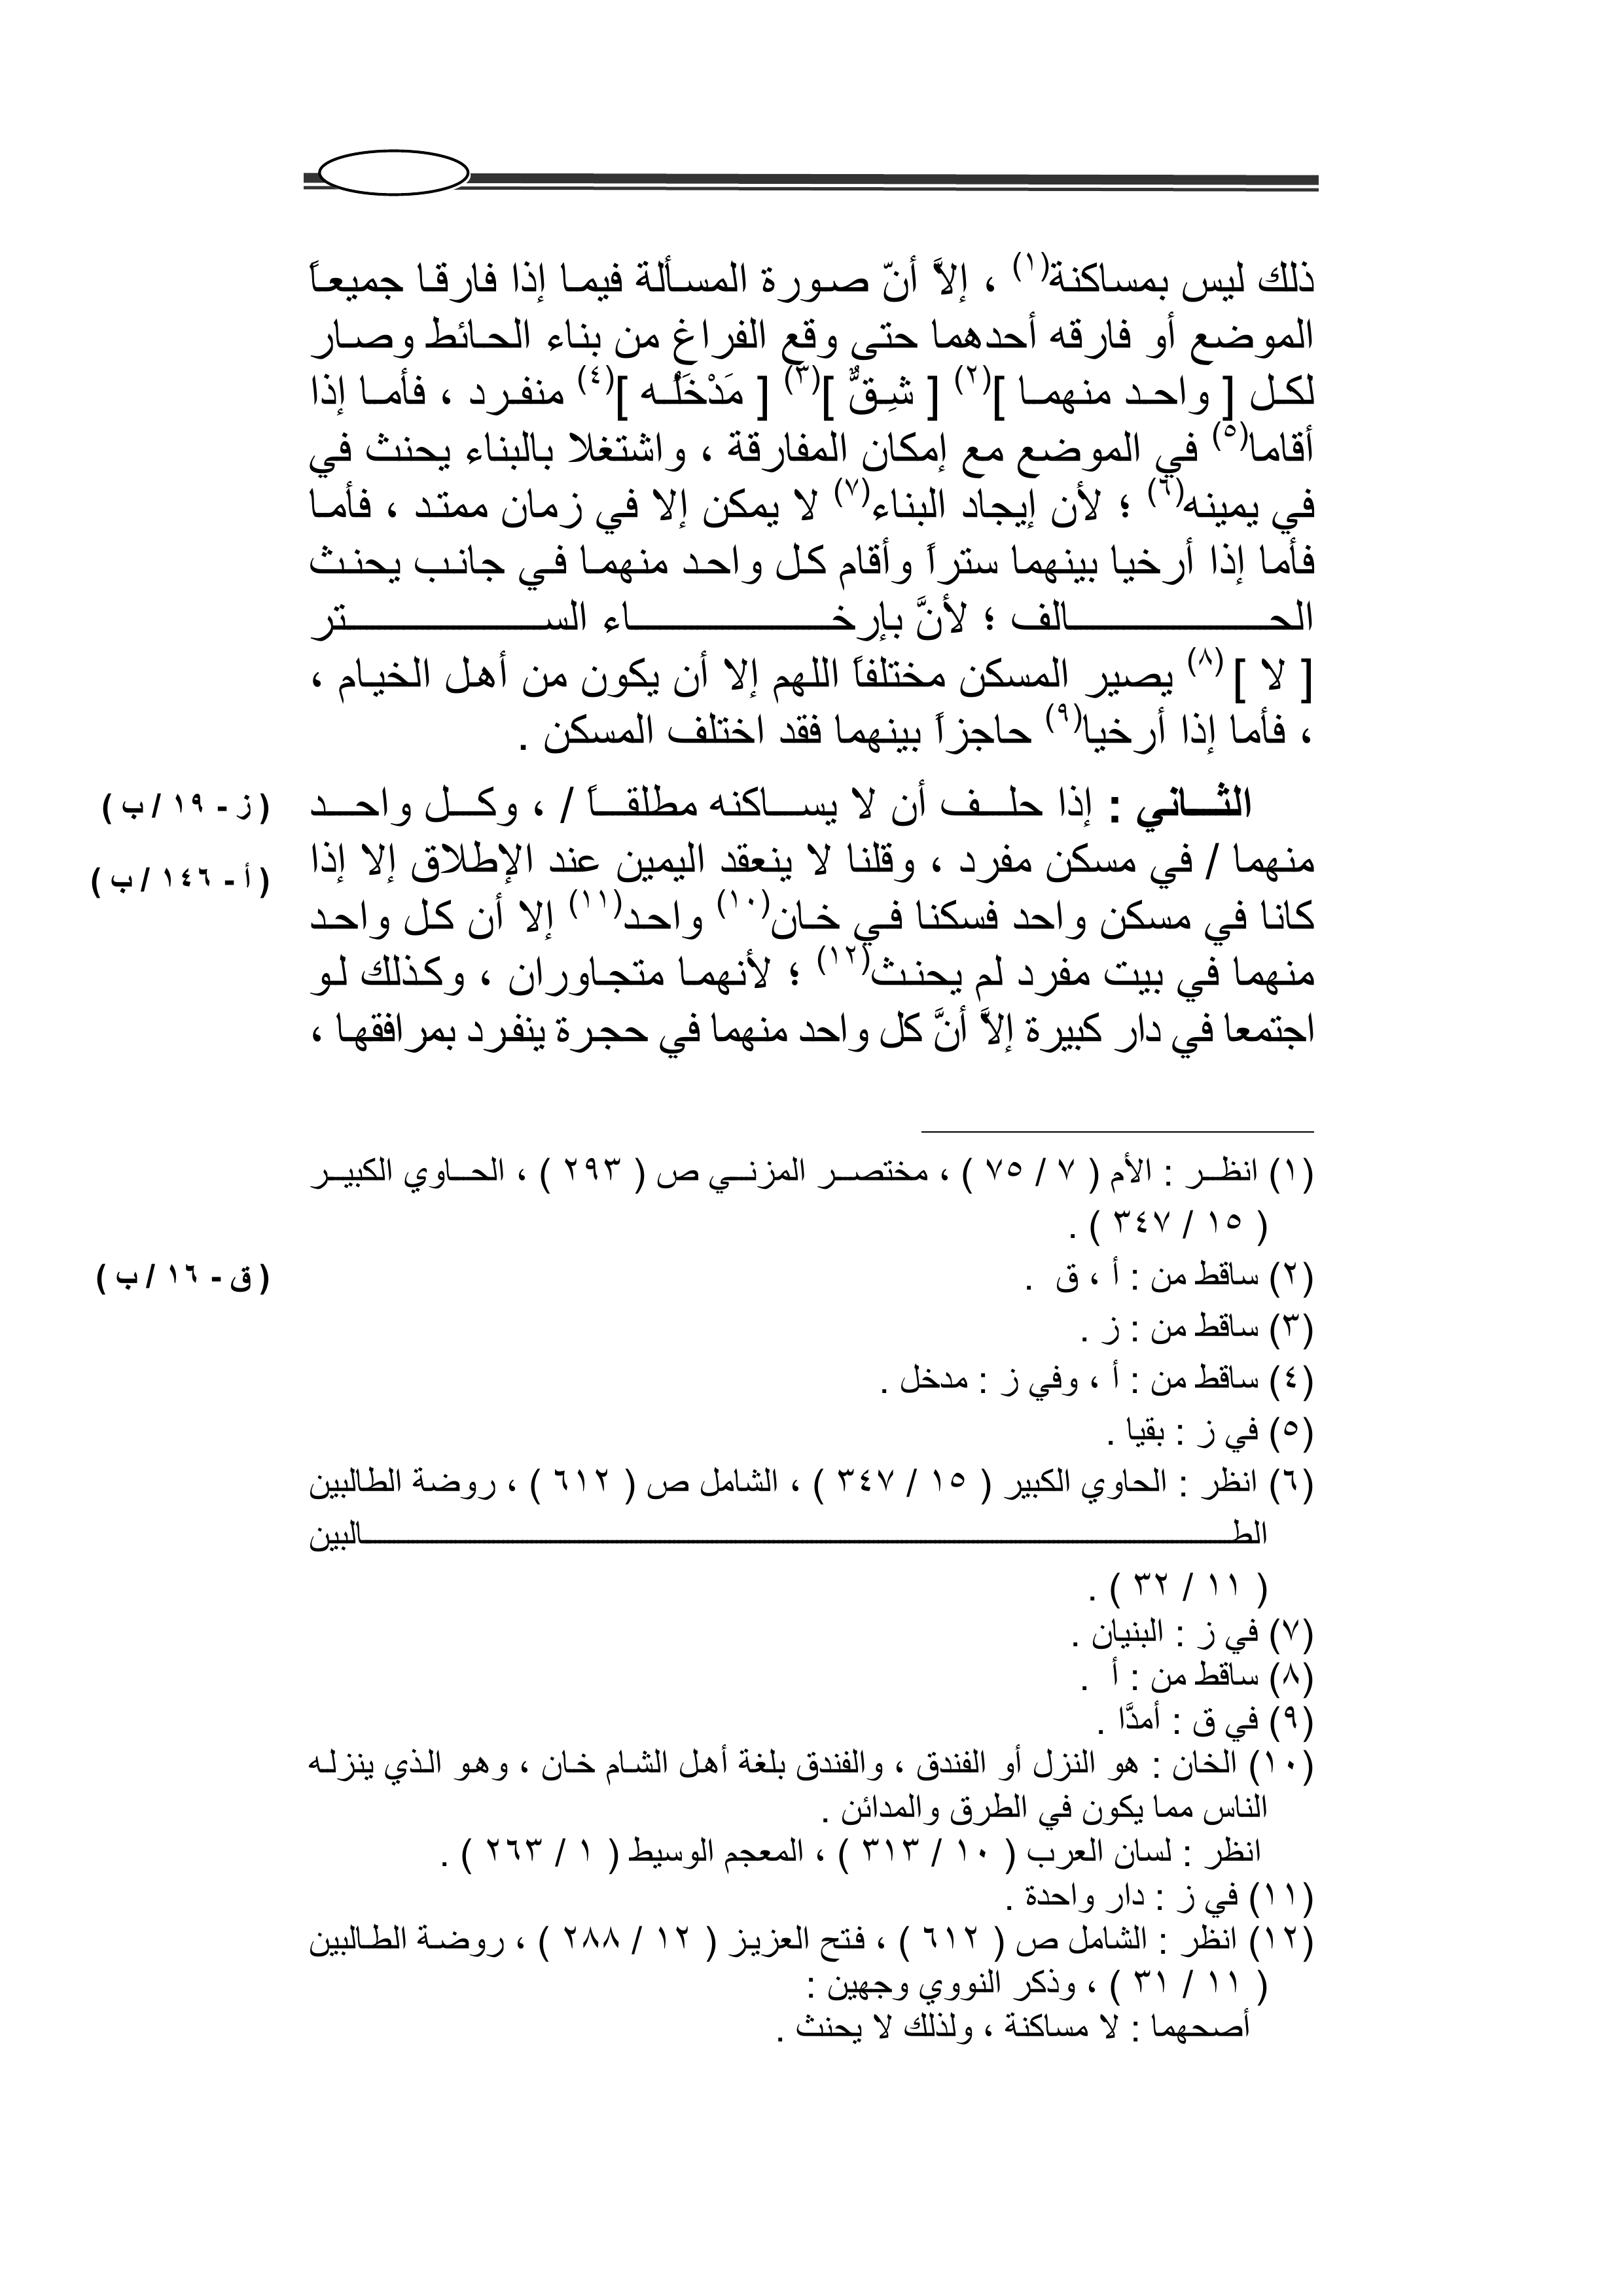 ذلك ليس بمساكنة(١) ، إلاَّ أنّ صورة المسألة فيما إذا فارقا جميعاً
الموضع أو فارقه أحدهما حتى وقع الفراغ من بناء الحائط وصار
لكل [ واحد منهما ](٢) [ شِقٌّ ](٣) [ مَدْخَلُه ](٤) منفرد ، فأما إذا
أقاما(٥) في الموضع مع إمكان المفارقة ، واشتغلا بالبناء يحنث في
في يمينه(٦) ؛ لأن إيجاد البناء(٧) لا يمكن إلا في زمان ممتد ، فأما
فأما إذا أرخيا بينهما ستراً وأقام كل واحد منهما في جانب يحنث
الحالف ؛ لأنَّ بإرخاء الستر
[ لا ] (٨) يصير المسكن مختلفاً اللهم إلا أن يكون من أهل الخيام ،
، فأما إذا أرخيا(٩) حاجزاً بينهما فقد اختلف المسكن .
الثاني : إذا حلف أن لا يساكنه مطلقاً / ، وكل واحد
( ز - ١٩ / ب )
منهما / في مسكن مفرد ، وقلنا لا ينعقد اليمين عند الإطلاق إلا إذا
( أ - ١٤٦ / ب )
كانا في مسكن واحد فسكنا في خان(١٠) واحد(١١) إلا أن كل واحد
منهما في بيت مفرد لم يحنث(١٢) ؛ لأنهما متجاوران ، وكذلك لو
اجتمعا في دار كبيرة إلاَّ أنَّ كل واحد منهما في حجرة ينفرد بمرافقها ،
(١) انظر : الأم ( ٧ / ٧٥ ) ، مختصر المزني ص ( ٢٩٣ ) ، الحاوي الكبير
( ١٥ / ٣٤٧ ) .
(٢) ساقط من : أ ، ق .
( ق - ١٦ / ب )
(٣) ساقط من : ز .
(٤) ساقط من : أ ، وفي ز : مدخل .
(٥) في ز : بقيا .
(٦) انظر : الحاوي الكبير ( ١٥ / ٣٤٧ ) ، الشامل ص ( ٦١٢ ) ، روضة الطالبين
الطالبين
( ١١ / ٣٢ ) .
(٧) في ز : البنيان .
(٨) ساقط من : أ .
(٩) في ق : أمدَّا .
(١٠) الخان : هو النزل أو الفندق ، والفندق بلغة أهل الشام خان ، وهو الذي ينزله
الناس مما يكون في الطرق والمدائن .
انظر : لسان العرب ( ١٠ / ٣١٣ ) ، المعجم الوسيط ( ١ / ٢٦٣ ) .
(١١) في ز : دار واحدة .
(١٢) انظر : الشامل ص ( ٦١٢ ) ، فتح العزيز ( ١٢ / ٢٨٨ ) ، روضة الطالبين
( ١١ / ٣١ ) ، وذكر النووي وجهين :
أصحهما : لا مساكنة ، ولذلك لا يحنث .